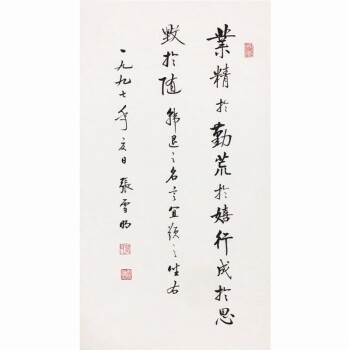 業精於勤荒於嬉行成於思
毀於随韩退之名言宜頌之坐右
一九九七年夏日張雪明